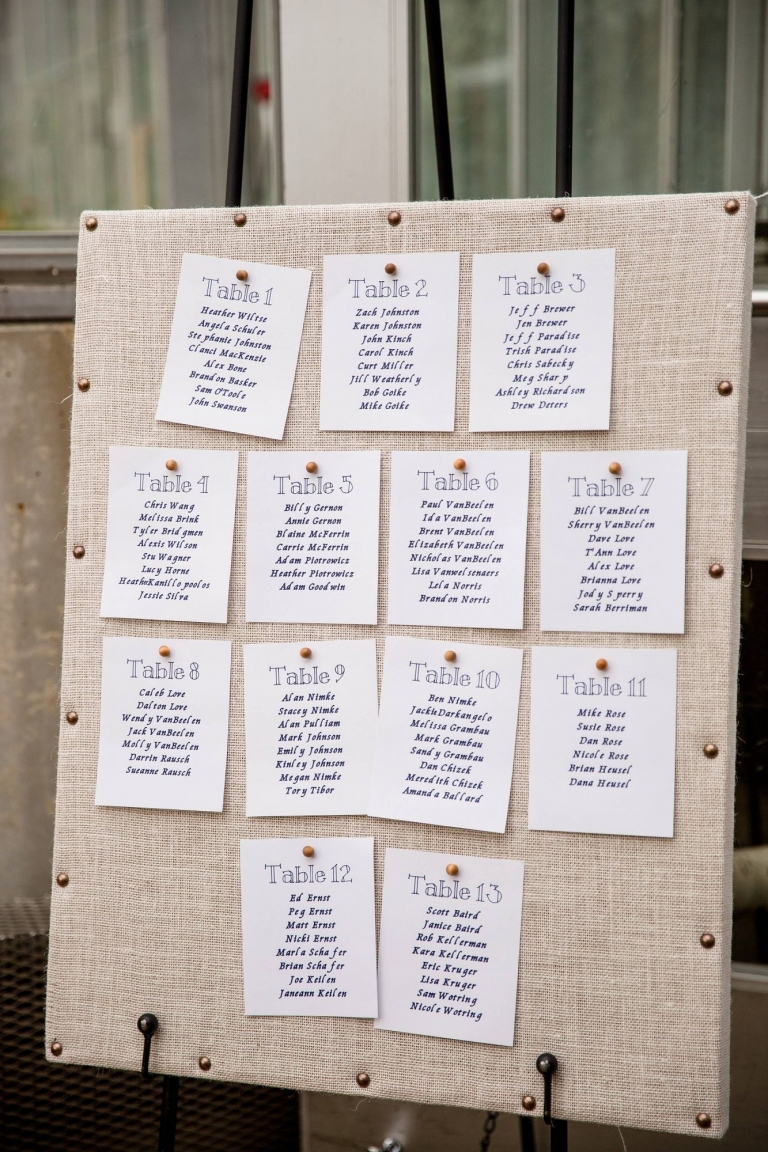 Table 1
Heather Wiltse
Angela Schuler
Stephanie Johnston
Clanci MacKenzie
Alex Bone
Brandon Basker
Sam O'Toole
John Swanson
Table 2
Zach Johnston
Karen Johnston
John Kinch
Carol Kinch
Curt Miller
Jill Weatherly
Bob Goike
Mike Goike
Table 3
Jeff Brewer
Jen Brewer
Jeff Paradise
Trish Paradise
Chris Sabecky
Meg Sharp
Ashley Richardson
Drew Deters
Table 4
Chris Wang
Melissa Brink
Tyler Bridgmen
Alexis Wilson
Stu Wagner
Lucy Horne
Kanillopoolos
Jessie Silva
Table 5
Billy Gernon
Annie Gernon
Blaine McFerrin
Carrie McFerrin
Adam Piotrowicz
Heather Piotrowicz
Adam Goodwin
Table 6
Paul VanBeelen
Ida VanBeelen
Brent VanBeelen
Elizabeth VanBeelen
Nicholas VanBeelen
Lisa Vanwelsenaers
Lela Norris
Brandon Norris
Table 7
Bill VanBeelen
Sherry VanBeelen
Dave Love
T'Ann Love
Alex Love
Brianna Love
Jody Sperry
Sarah Berriman
Table 8
Caleb Love
Dalton Love
Wendy VanBeelen
Jack VanBeelen
Molly VanBeelen
Darrin Rausch
Sueanne Rausch
Table 9
Alan Nimke
Stacey Nimke
Alan Pulliam
Mark Johnson
Emily Johnson
Kinley Johnson
Megan Nimke
Tory Tibor
Table 10
Ben Nimke
Jackie Darkangelo
Melissa Grambau
Mark Grambau
Sandy Grambau
Dan Chizek
Meredith Chizek
Amanda Ballard
Table 11
Mike Rose
Susie Rose
Dan Rose
Nicole Rose
Brian Heusel
Dana Heusel
Table 12
Ed Ernst
Peg Ernst
Matt Ernst
Nicki Ernst
Marla Schafer
Brian Schafer
Joe Keilen
Janeann Keilen
Table 13
Scott Baird
Janice Baird
Rob Kellerman
Kara Kellerman
Eric Kruger
Lisa Kruger
Sam Wotring
Nicole Wotring